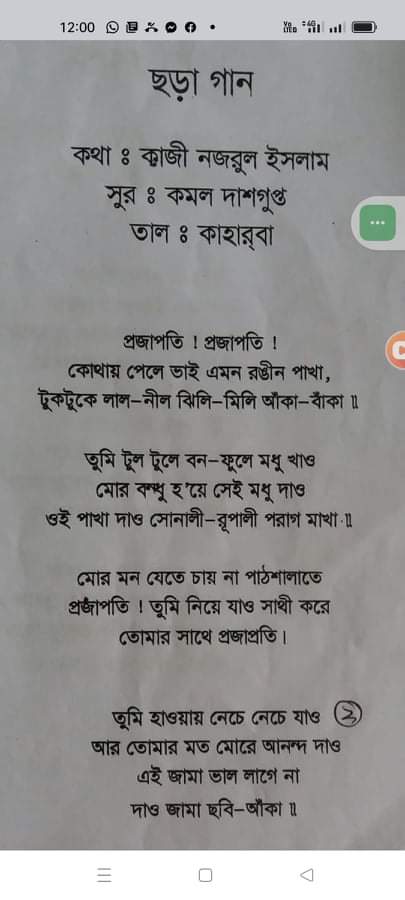 12:00
Vo LTED 4G
ছড়া গান
কথা ঃ কাজী নজরুল ইসলাম
সুর ঃ কমল দাশগুপ্ত
তাল ঃ কাহার্‌বা
প্রজাপতি ! প্রজাপতি !
কোথায় পেলে ভাই এমন রঙীন পাখা,
টুকটুকে লাল-নীল ঝিলি-মিলি আঁকা-বাঁকা ॥
তুমি টুল টুলে বন-ফুলে মধু খাও
মোর বন্ধু হ'য়ে সেই মধু দাও
ওই পাখা দাও সোনালী-রূপালী পরাগ মাখা ॥
মোর মন যেতে চায় না পাঠশালাতে
প্রজাপতি ! তুমি নিয়ে যাও সাথী করে
তোমার সাথে প্রজাপ্রতি।
তুমি হাওয়ায় নেচে নেচে যাও
আর তোমার মত মোরে আনন্দ দাও
এই জামা ভাল লাগে না
দাও জামা ছবি-আঁকা ॥